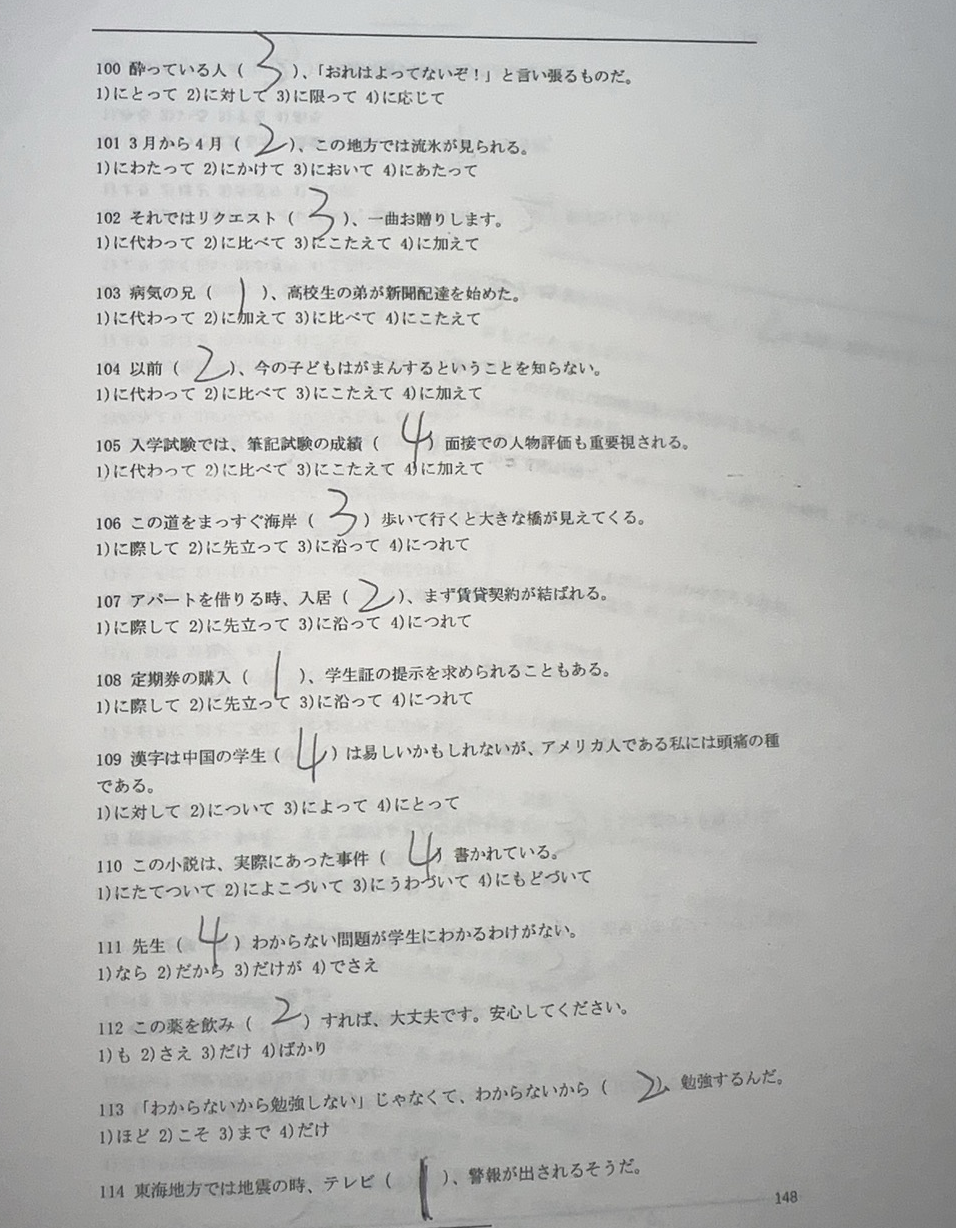 100 酔っている人（ 3 ）、「おれはよってないぞ！」と言い張るものだ。
1)にとって 2)に対して 3)に限って 4)に応じて
101 3月から4月（ 2 ）、この地方では流氷が見られる。
1)にわたって 2)にかけて 3)において 4)にあたって
102 それではリクエスト（ 3 ）、一曲お贈りします。
1)に代わって 2)に比べて 3)にこたえて 4)に加えて
103 病気の兄（ 1 ）、高校生の弟が新聞配達を始めた。
1)に代わって 2)に加えて 3)に比べて 4)にこたえて
104 以前（ 2 ）、今の子どもはがまんするということを知らない。
1)に代わって 2)に比べて 3)にこたえて 4)に加えて
105 入学試験では、筆記試験の成績（ 4 ）面接での人物評価も重要視される。
1)に代わって 2)に比べて 3)にこたえて 4)に加えて
106 この道をまっすぐ海岸（ 3 ）歩いて行くと大きな橋が見えてくる。
1)に際して 2)に先立って 3)に沿って 4)につれて
107 アパートを借りる時、入居（ 2 ）、まず賃貸契約が結ばれる。
1)に際して 2)に先立って 3)に沿って 4)につれて
108 定期券の購入（ 1 ）、学生証の提示を求められることもある。
1)に際して 2)に先立って 3)に沿って 4)につれて
109 漢字は中国の学生（ 4 ）は易しいかもしれないが、アメリカ人である私には頭痛の種
である。
1)に対して 2)について 3)によって 4)にとって
110 この小説は、実際にあった事件（ 4 ）書かれている。
1)にたてついて 2)によこづいて 3)にうわづいて 4)にもどづいて
111 先生（ 4 ）わからない問題が学生にわかるわけがない。
1)なら 2)だから 3)だけが 4)でさえ
112 この薬を飲み（ 2 ）すれば、大丈夫です。安心してください。
1)も 2)さえ 3)だけ 4)ばかり
113 「わからないから勉強しない」じゃなくて、わからないから（ 2 ）、勉強するんだ。
1)ほど 2)こそ 3)まで 4)だけ
114 東海地方では地震の時、テレビ（ 1 ）、警報が出されるそうだ。
148